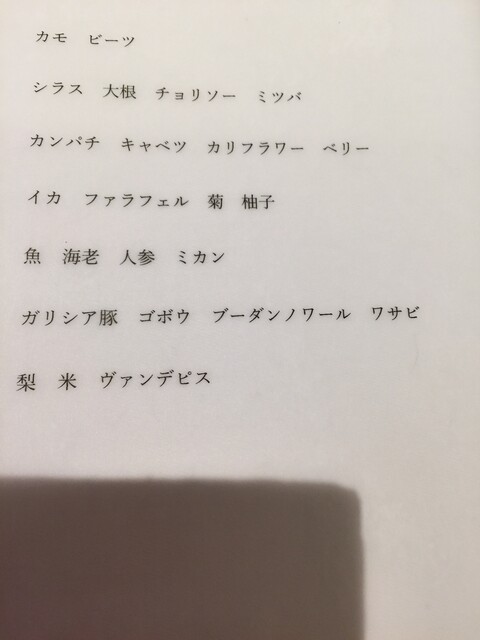 カモ　ビーツ
シラス　大根　チョリソー　ミツバ
カンパチ　キャベツ　カリフラワー　ベリー
イカ　ファラフェル　菊　柚子
魚　海老　人参　ミカン
ガリシア豚　ゴボウ　ブーダンノワール　ワサビ
梨　米　ヴァンデピス